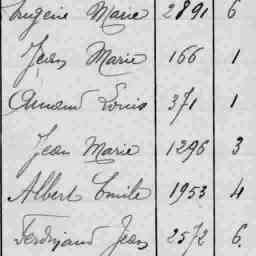 Eugène Marie 2891 6
Jean Marie 166 1
Amand Louis 371 1
Jean Marie 1296 3
Albert Emile 1953 4
Ferdinand Jean 2572 6.